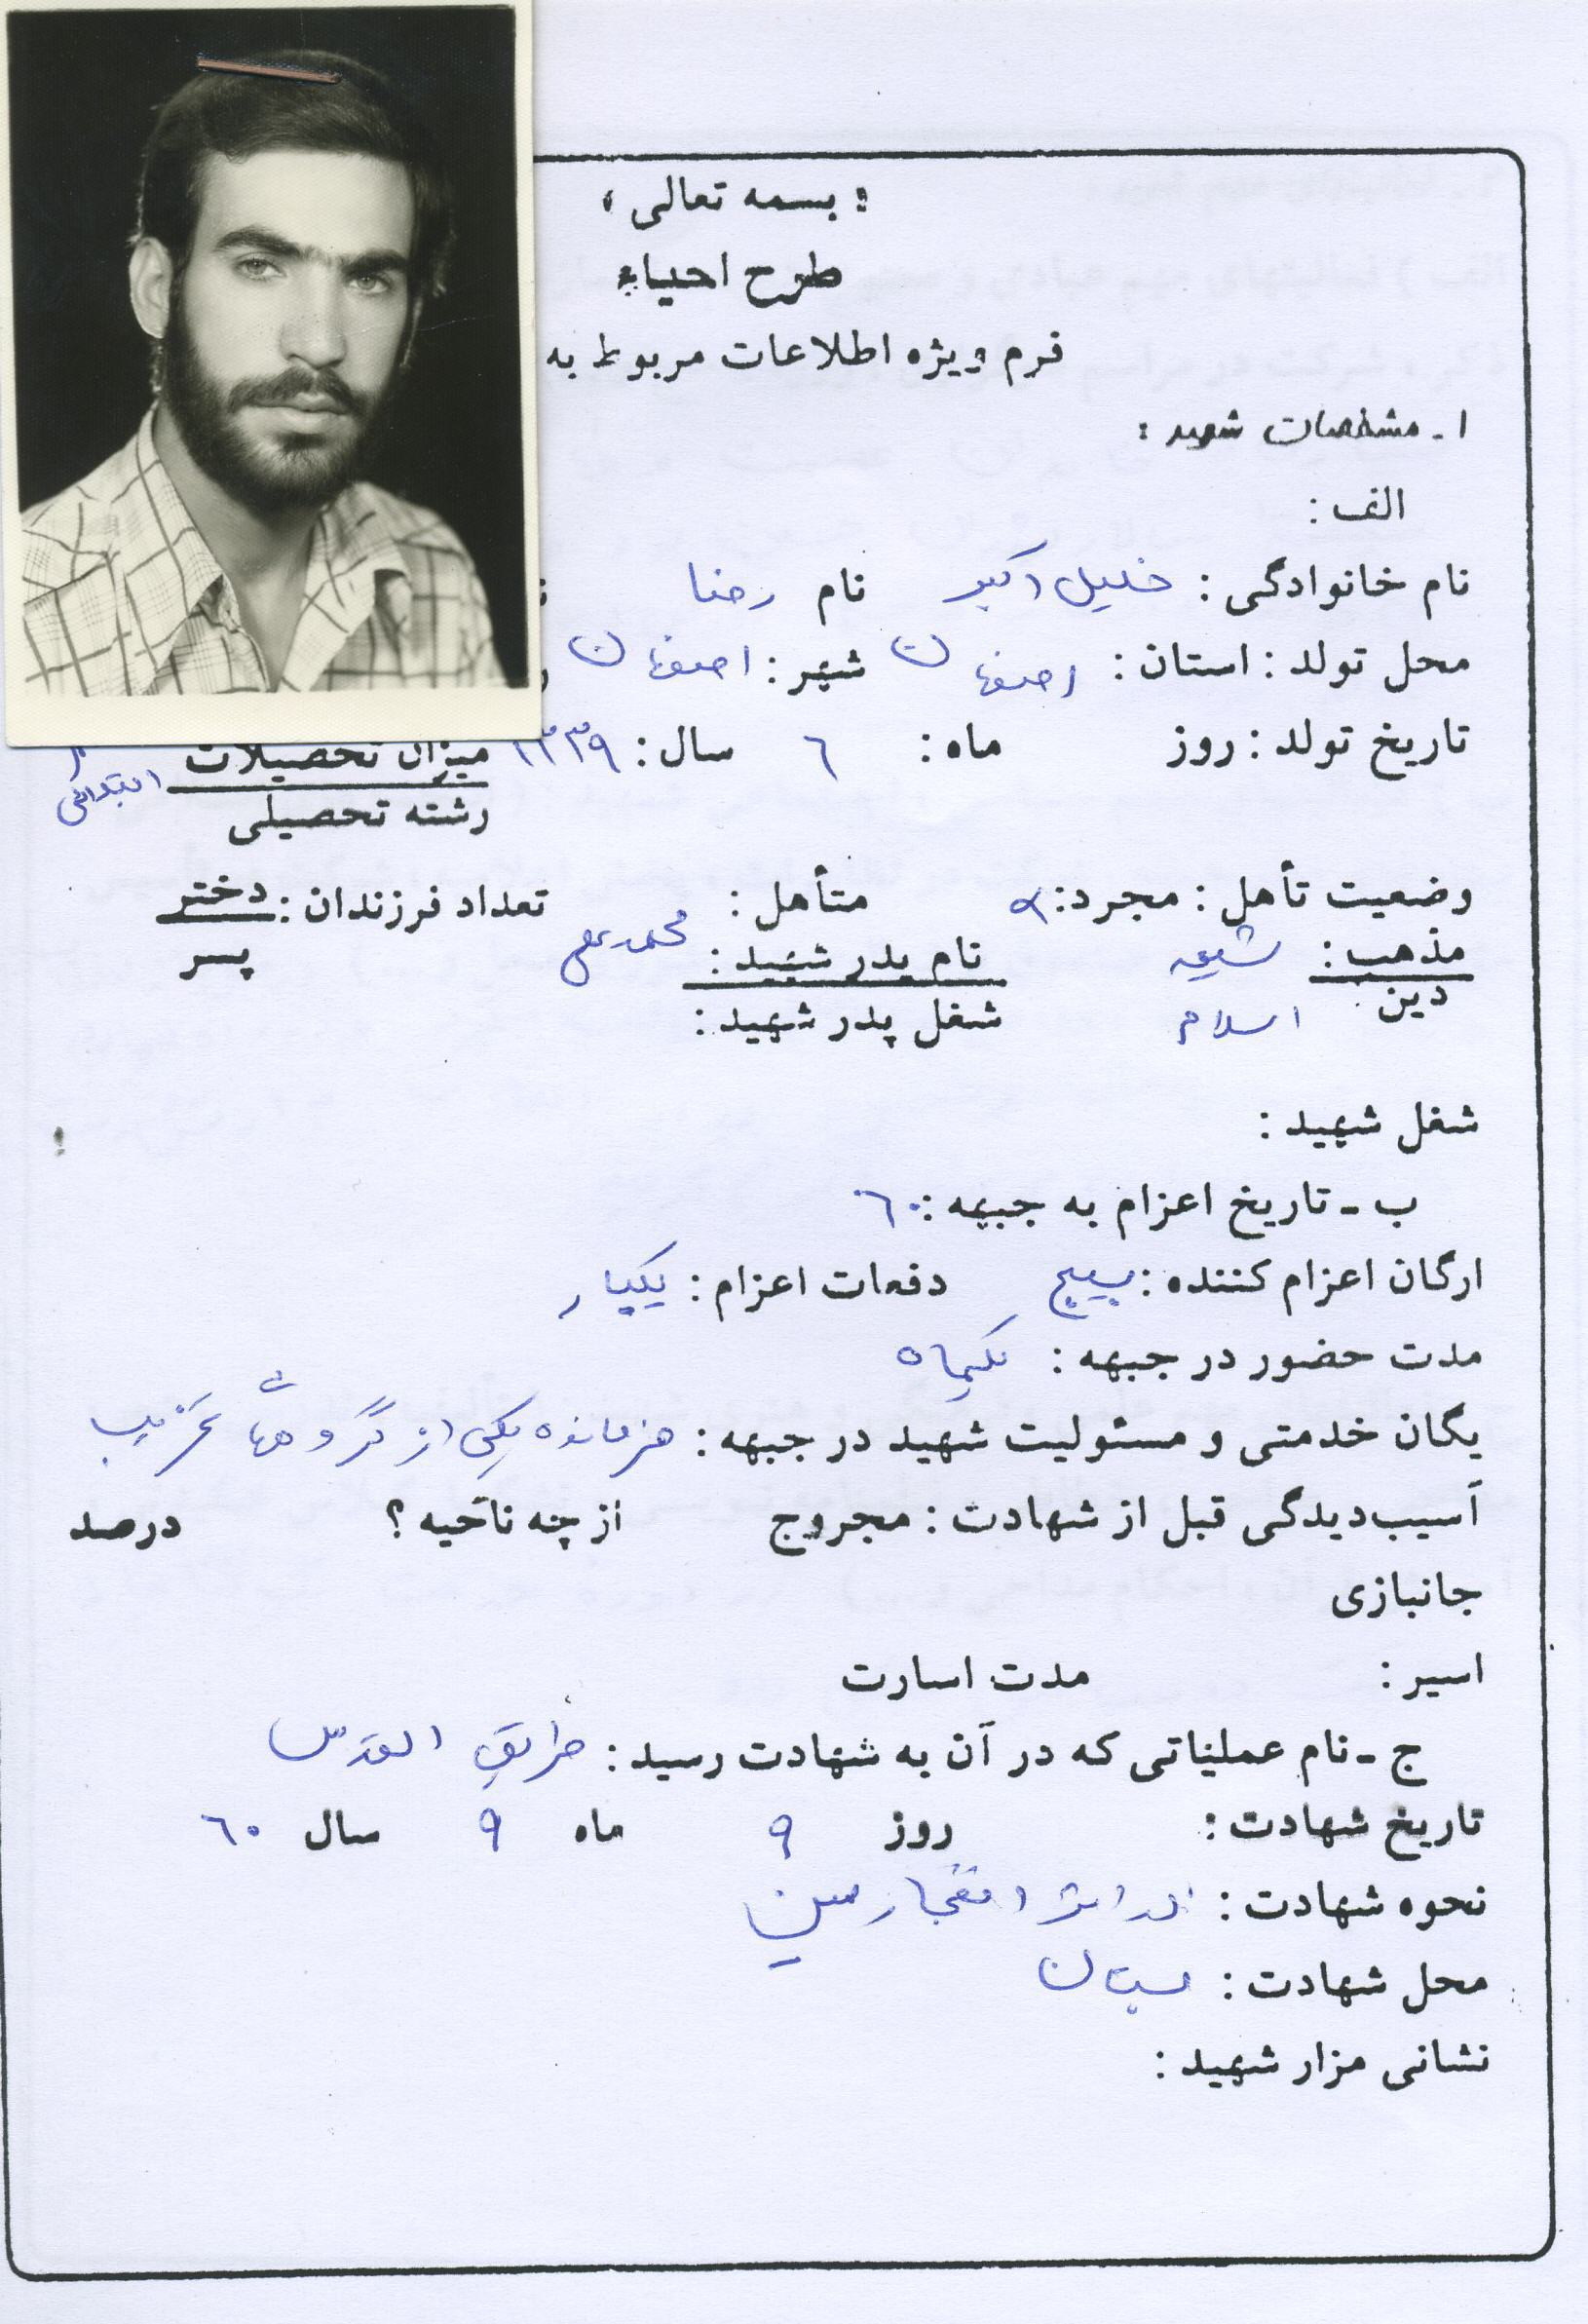 « بسمه تعالی »
طرح احیاء
فرم ویژه اطلاعات مربوط به
۱ـ مشخصات شهید :
الف :
نام خانوادگی : خلیل اکبر نام رضا
محل تولد : استان : اصفهان شهر : اصفهان
تاریخ تولد : روز ماه : ٦ سال : ۱۳۳۹ میزان تحصیلات ابتدائی
رشته تحصیلی
وضعیت تأهل : مجرد : متأهل : تعداد فرزندان : دختر
پسر
مذهب : شیعه نام پدر شهید : محمدعلی
دین اسلام شغل پدر شهید :
شغل شهید :
ب ـ تاریخ اعزام به جبهه : ٦۰
ارگان اعزام کننده : بسیج دفعات اعزام : یکبار
مدت حضور در جبهه : یکماه
یگان خدمتی و مسئولیت شهید در جبهه : فرمانده یکی از گروههای تخریب
آسیب‌دیدگی قبل از شهادت : مجروح از چه ناحیه ؟ درصد
جانبازی
اسیر : مدت اسارت
ج ـ نام عملیاتی که در آن به شهادت رسید : طریق القدس
تاریخ شهادت : روز ۹ ماه ۹ سال ٦۰
نحوه شهادت : در اثر انفجار مین
محل شهادت : بستان
نشانی مزار شهید :